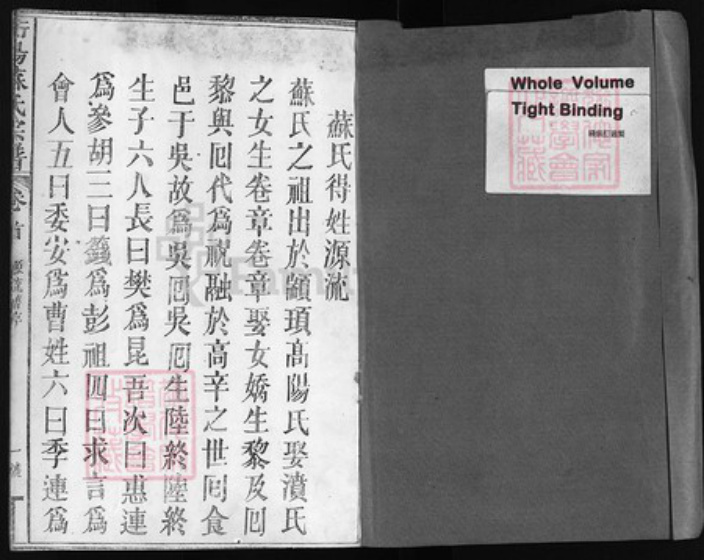 Whole Volume
Tight Binding
蘇氏得姓源流
蘇氏之祖出於顓頊高陽氏娶瀆氏
之女生卷章卷章娶女嬌生黎及囘
黎與囘代為祝融於高辛之世囘食
邑于吳故為吳囘吳囘生陸終陸終
生子六人長曰樊為昆吾次曰惠連
為參胡三曰籛為彭祖四曰求言為
會人五曰委安為曹姓六曰季連為
衡陽蘇氏宗譜 卷首